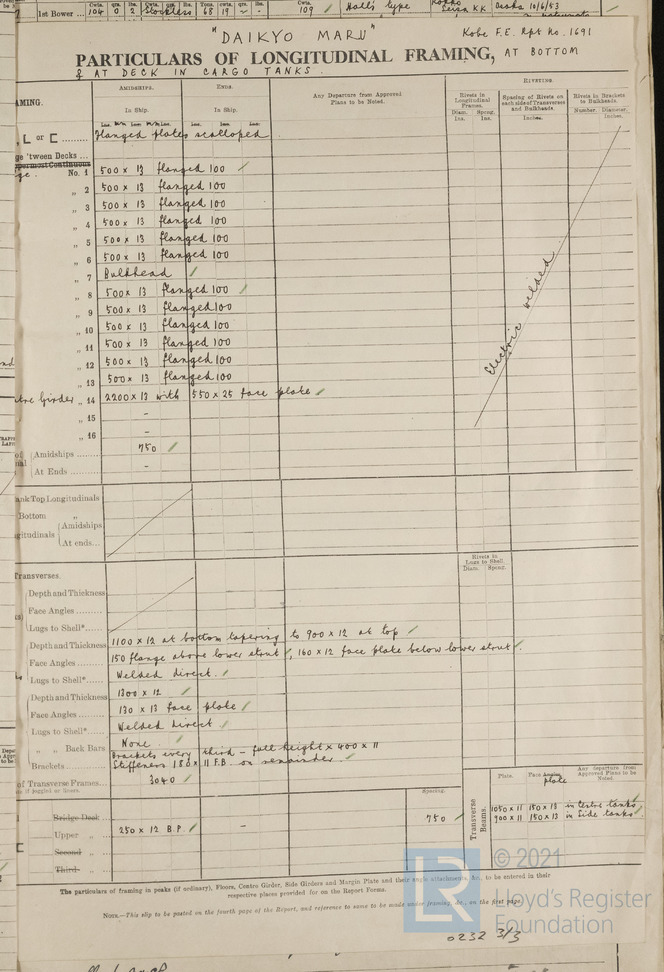 1st Bower
Cwts. qrs. lbs.
104 0 2 Stockless
Tons. cwts. qrs. lbs.
68 19 - -
Cwts.
109 Hall's type
Osaka 10/6/53
"DAIKYO MARU"
Kobe F.E. Rpt No. 1691
PARTICULARS OF LONGITUDINAL FRAMING, AT BOTTOM
& AT DECK IN CARGO TANKS.
AMING.
AMIDSHIPS.
ENDS.
Any Departure from Approved Plans to be Noted.
RIVETING.
In Ship.
In Ship.
Rivets in Longitudinal Frames.
Diam. Ins.
Spcng. Ins.
Spacing of Rivets on each side of Transverses and Bulkheads.
Inches.
Rivets in Brackets to Bulkheads.
Number.
Diameter, Inches.
L or [
Flanged plates scalloped
ge 'tween Decks ...
No. 1 500 x 13 flanged 100
„ 2 500 x 13 flanged 100
„ 3 500 x 13 flanged 100
„ 4 500 x 13 flanged 100
„ 5 500 x 13 flanged 100
„ 6 500 x 13 flanged 100
„ 7 Bulkhead
„ 8 500 x 13 flanged 100
„ 9 500 x 13 flanged 100
„ 10 500 x 13 flanged 100
„ 11 500 x 13 flanged 100
„ 12 500 x 13 flanged 100
„ 13 500 x 13 flanged 100
tre Girder „ 14 2200 x 13 with 550 x 25 face plate
„ 15 -
„ 16 -
Electric welded
Amidships 750
At Ends -
ank Top Longitudinals
Bottom „
gitudinals
Amidships
At ends...
Transverses.
Rivets in Lugs to Shell.
Diam. Spcng.
Depth and Thickness
Face Angles
Lugs to Shell*
Depth and Thickness 1100 x 12 at bottom tapering to 900 x 12 at top
Face Angles 150 flange above lower strut, 160 x 12 face plate below lower strut.
Lugs to Shell* Welded direct.
Depth and Thickness 1300 x 12
Face Angles 130 x 13 face plate
Lugs to Shell* Welded direct
„ „ Back Bars None.
Brackets every third - full height x 400 x 11
Brackets Stiffeners 180 x 11 F.B. on remainder.
of Transverse Frames 3040
Spacing.
Bridge Deck
Upper „ 250 x 12 B.P. - 750
Second „
Third „
Transverse Beams.
Plate.
Face Angles plate
Any departure from Approved Plans to be Noted.
1050 x 11 150 x 13 in centre tanks
900 x 11 150 x 13 in side tanks
The particulars of framing in peaks (if ordinary), Floors, Centre Girder, Side Girders and Margin Plate and their angle attachments, &c., to be entered in their
respective places provided for on the Report Forms.
NOTE.—This slip to be posted on the fourth page of the Report, and reference to same to be made under framing, &c., on the first page.
LR
© 2021
Lloyd's Register
Foundation
0232 3/3